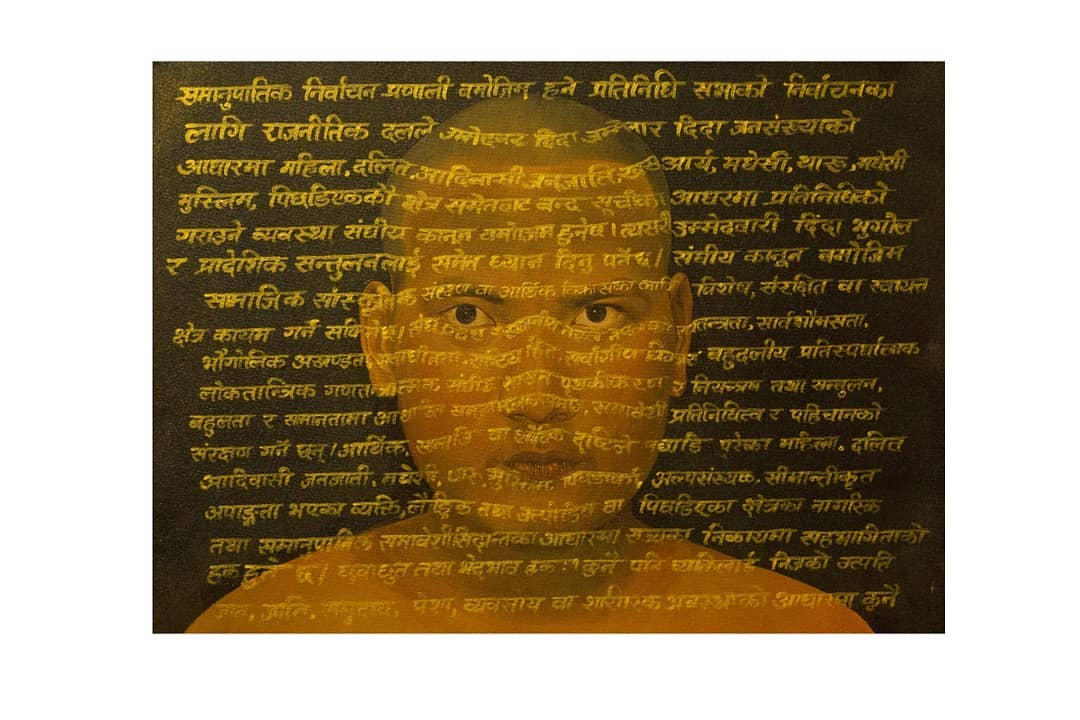 समानुपातिक निर्वाचन प्रणाली वमोजिम हुने प्रतिनिधि सभाको निर्वाचनका
लागि राजनीतिक दलले उम्मेदवार दिंदा दिंदा जनसंख्याको
आधारमा महिला, दलित, आदिवासी जनजाति, आर्य, मधेसी, थारू, मधेसी
मुस्लिम, पिछडिएको क्षेत्र समेतबाट बन्द सूचीको आधरमा प्रतिनिधिको
गराउने व्यवस्था संघीय कानून वमोजिम हुनेछ। त्यसरी उम्मेदवारी दिंदा भुगोल
र प्रादेशिक सन्तुलनलाई समेत ध्यान दिनु पर्नेछ। संघीय कानून वमोजिम
सामाजिक संरक्षण वा आर्थिक विकासका लागि विशेष, संरक्षित वा स्वायत्त
क्षेत्र कायम गर्न सार्वभौमसत्ता,
भौगोलिक अखण्डता, स्वाधीनता, बहुदलीय प्रतिस्पर्धात्मक
लोकतान्त्रिक गणतन्त्रात्मक पृथकीकरण र नियन्त्रण तथा सन्तुलन,
बहुलता र समानतामा समावेशी प्रतिनिधित्व र पहिचानको
संरक्षण गर्ने छन्। आर्थिक, वा शैक्षिक दृष्टिले पछाडि परेका महिला, दलित
आदिवासी जनजाती, मधेसी, थारू, मुस्लिम, अल्पसंख्यक, सीमान्तीकृत
अपाङ्गता भएका व्यक्ति, लैङ्गिक तथा वा पिछडिएका क्षेत्रका नागरिक
तथा समानुपातिक समावेशी सिद्धान्तका आधारमा राज्यका निकायमा सहभागिताको
हक हुने छ। छुवाछुत तथा भेदभाव हक : कुनै पनि व्यक्तिलाई निजको उत्पत्ति
जात, जाति, समुदाय, पेशा, व्यवसाय वा शारीरिक अवस्थाको आधारमा कुनै